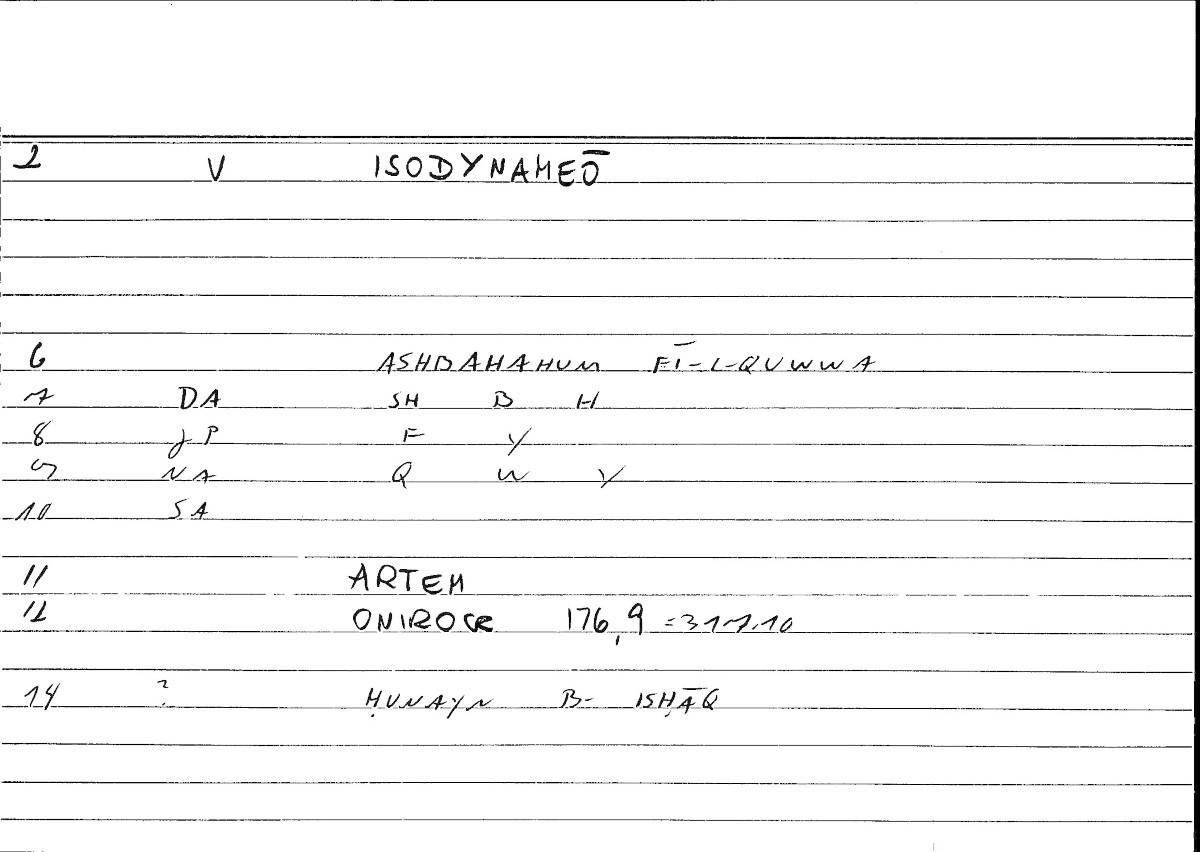 2 V ISODYNAMEŌ
6 ASHBAHAHUM FĪ-L-QUWWA
7 DA SH B H
8 JP F Y
9 NA Q W Y
10 SA
11 ARTEM
12 ONIROCR 176,9 =317.10
14 ? ḤUNAYN B- ISḤĀQ